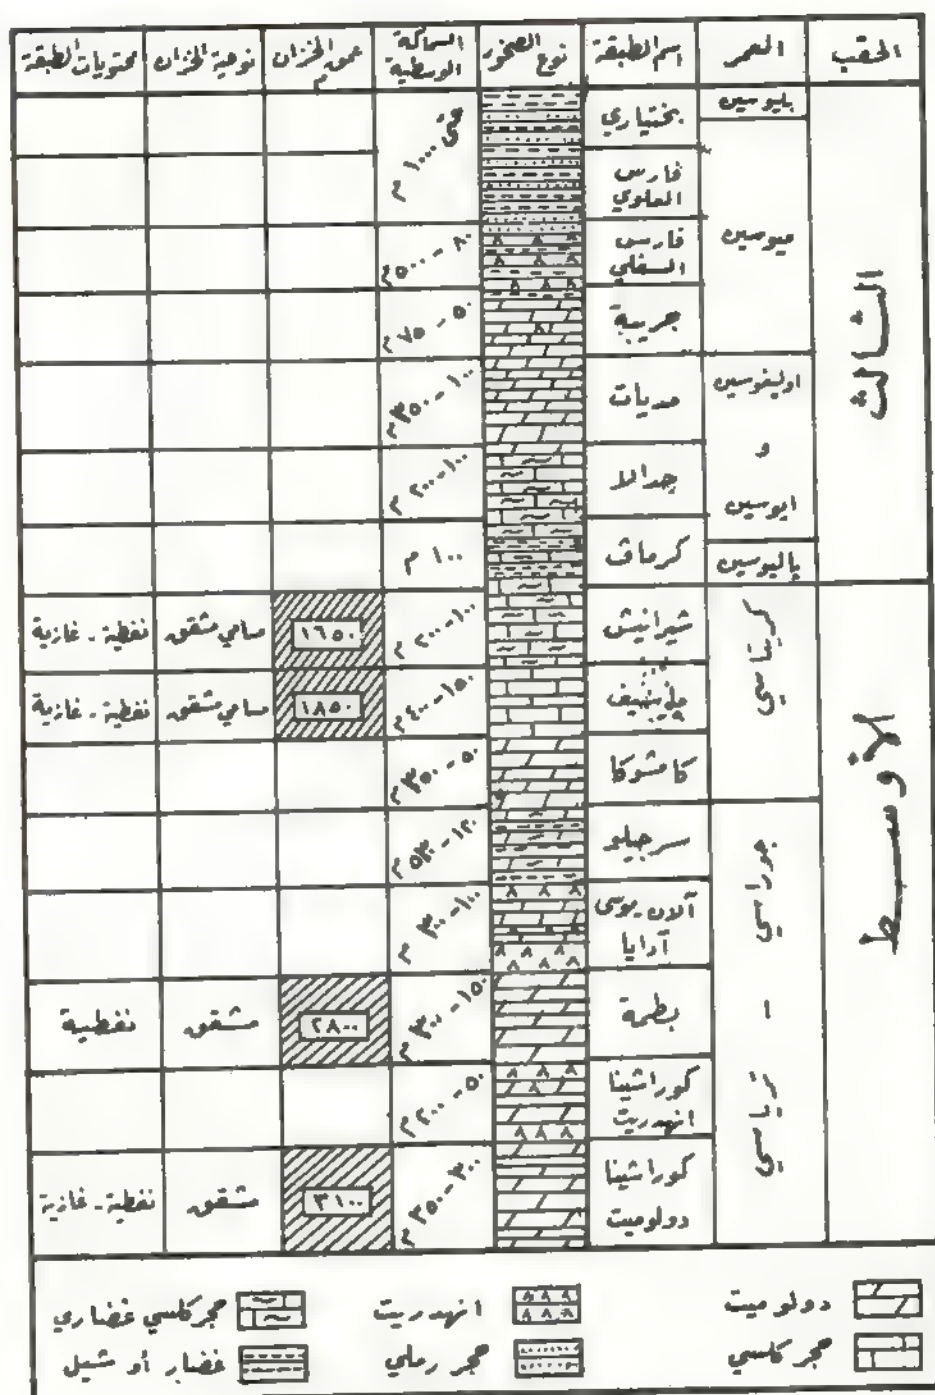 الحقب العمر اسم الطبقة نوع الصخور السماكة الوسطية عمق الخزان م نوعية الخزان محتويات الطبقة
الثالث
بليوسين
بختياري
حتى ١٠٠٠ م
ميوسين
فارس العلوي
فارس السفلي
٨٠ - ٤٥٠٠
جريبة
٥٠ - ٧٥ م
اوليغوسين و ايوسين
مديات
١٠٠ - ٣٥٠ م
جدالا
١٠٠ - ٢٠٠ م
باليوسين
كرماف
١٠٠ م
الأوسط
كريتاسي
شيرانيش
١٠٠ - ٢٠٠ م
١٦٥٠
مسامي مشقق
نفطية - غازية
١٥٠ - ٤٠٠ م
١٨٥٠
مسامي مشقق
نفطية - غازية
كامشوكا
٥٠ - ٣٥٠ م
جوراسي - ترياسي
سرجيلو
١٢٠ - ٥٣٠ م
آلان - موسى
آدايا
١٠٠ - ٣٠٠ م
بطمة
١٥٠ - ٣٠٠ م
٢٨٠٠
مشقق
نفطية
كوراشينا
انهدريت
٥٠ - ٢٠٠ م
كوراشينا
دولوميت
٣٠٠ - ٣٥٠ م
٣١٠٠
مشقق
نفطية - غازية
دولوميت
انهدريت
حجر كلسي غضاري
حجر كلسي
حجر رملي
غضار أو شيل